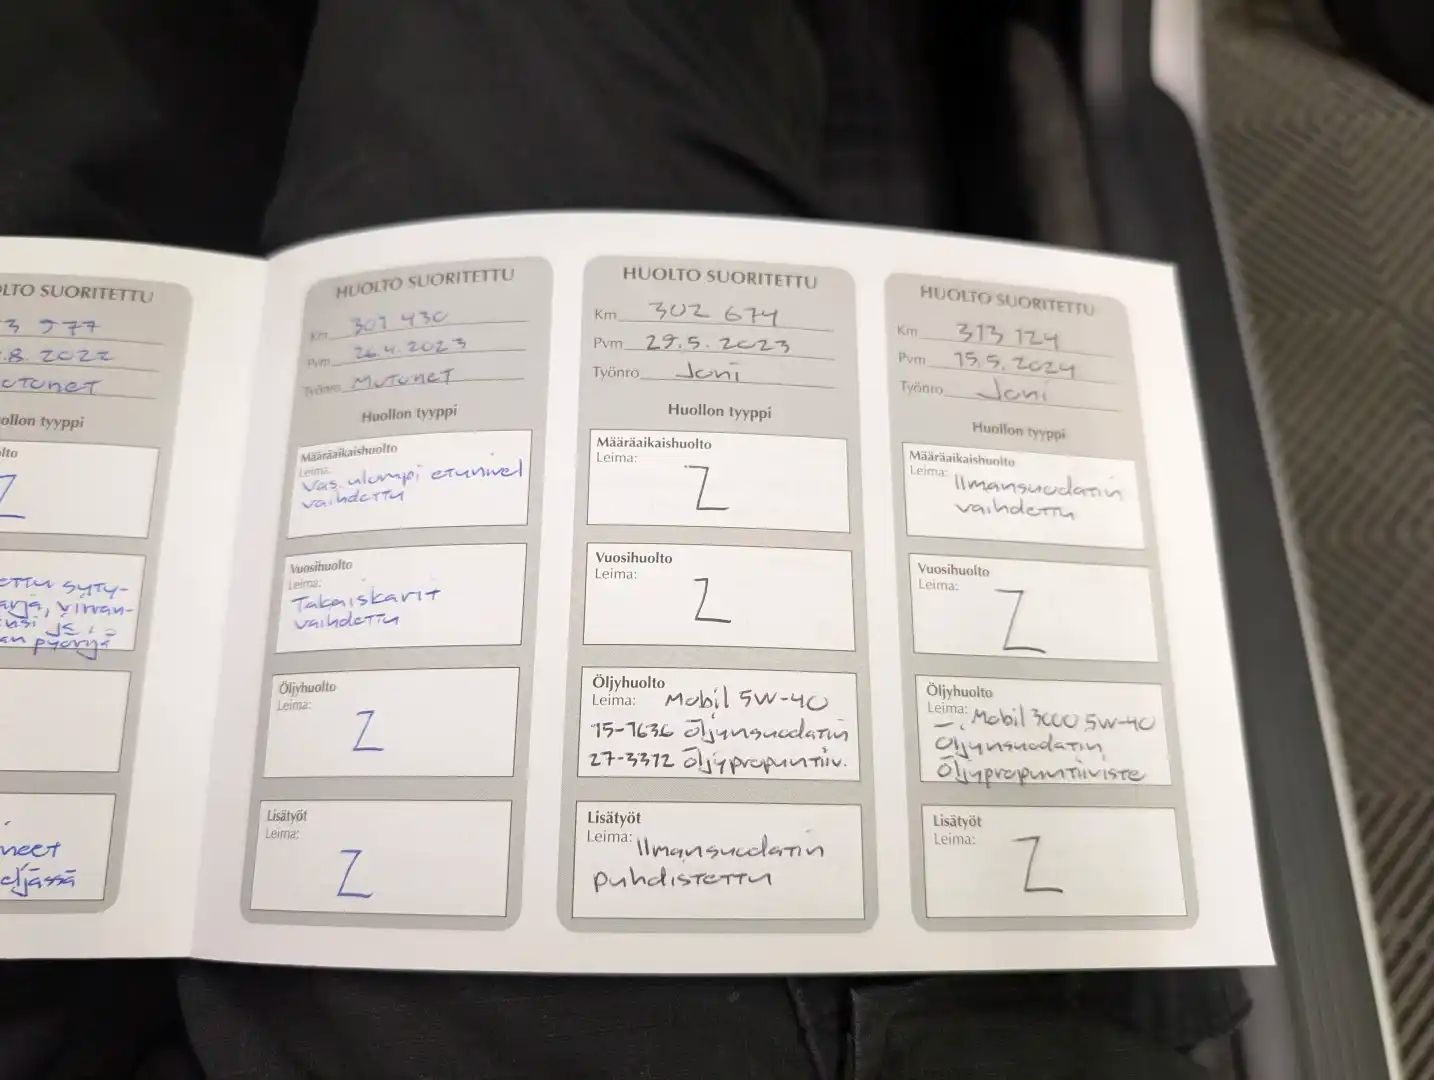 LTO SUORITETTU
3 977
.8. 2022
ollon tyyppi
lto
Z
ettu syty-
virran-
an pyörjä
neet
HUOLTO SUORITETTU
Km 301 430
Pvm 26.4.2023
Työnro Mutonet
Huollon tyyppi
Määräaikaishuolto
Leima:
Vas. ulompi etunivel
vaihdettu
Vuosihuolto
Leima:
Takaiskarit
vaihdettu
Öljyhuolto
Leima:
Z
Lisätyöt
Leima:
Z
HUOLTO SUORITETTU
Km 302 674
Pvm 29.5.2023
Työnro Joni
Huollon tyyppi
Määräaikaishuolto
Leima:
Z
Vuosihuolto
Leima:
Z
Öljyhuolto
Leima: Mobil 5W-40
15-1636 Öljynsuodatin
27-3312 Öljypropuntiiv.
Lisätyöt
Leima: Ilmansuodatin
puhdistettu
HUOLTO SUORITETTU
Km 313 124
Pvm 15.5.2024
Työnro Joni
Huollon tyyppi
Määräaikaishuolto
Leima: Ilmansuodatin
vaihdettu
Vuosihuolto
Leima:
Z
Öljyhuolto
Leima: Mobil 3000 5W-40
Öljynsuodatin,
Öljypropuntiiviste
Lisätyöt
Leima:
Z